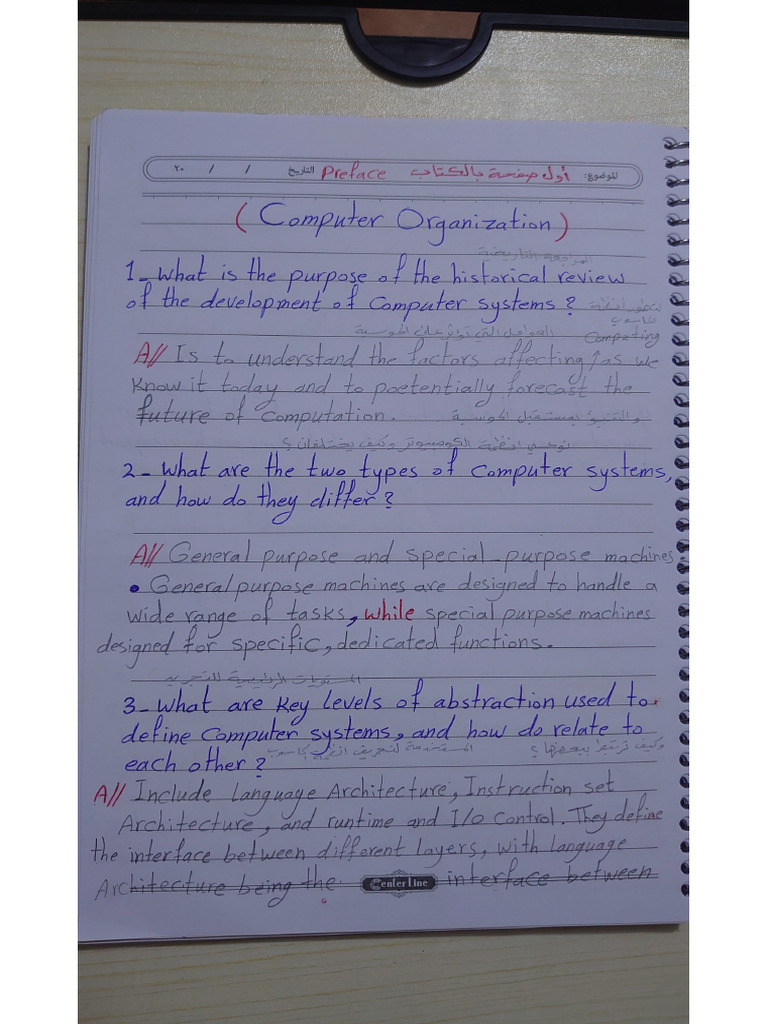 الموضوع: أول صفحة بالكتاب Preface التاريخ / / ٢٠
(Computer Organization)
المراجعة التاريخية
1- What is the purpose of the historical review
of the development of Computer systems? لتطور أنظمة
الحاسوب
العوامل التي تؤثر على الحوسبة Computing
A// Is to understand the factors affecting as we
know it today and to poetentially forecast the
future of Computation. والتنبؤ بمستقبل الحوسبة
نوعي انظمة الكومبيوتر وكيف يختلفان ؟
2- What are the two types of Computer systems,
and how do they differ?
A// General purpose and special-purpose machines.
• General purpose machines are designed to handle a
wide range of tasks, while special purpose machines
designed for specific, dedicated functions.
المستويات الرئيسية للتجريد
3- What are key levels of abstraction used to
define Computer systems, and how do relate to
each other? المستخدمة لتعريف انظمة حاسوب وكيف ترتبط ببعضها ؟
A// Include language Architecture, Instruction set
Architecture, and runtime and I/O Control. They define
the interface between different layers, with language
Architecture being the interface between
Centerline